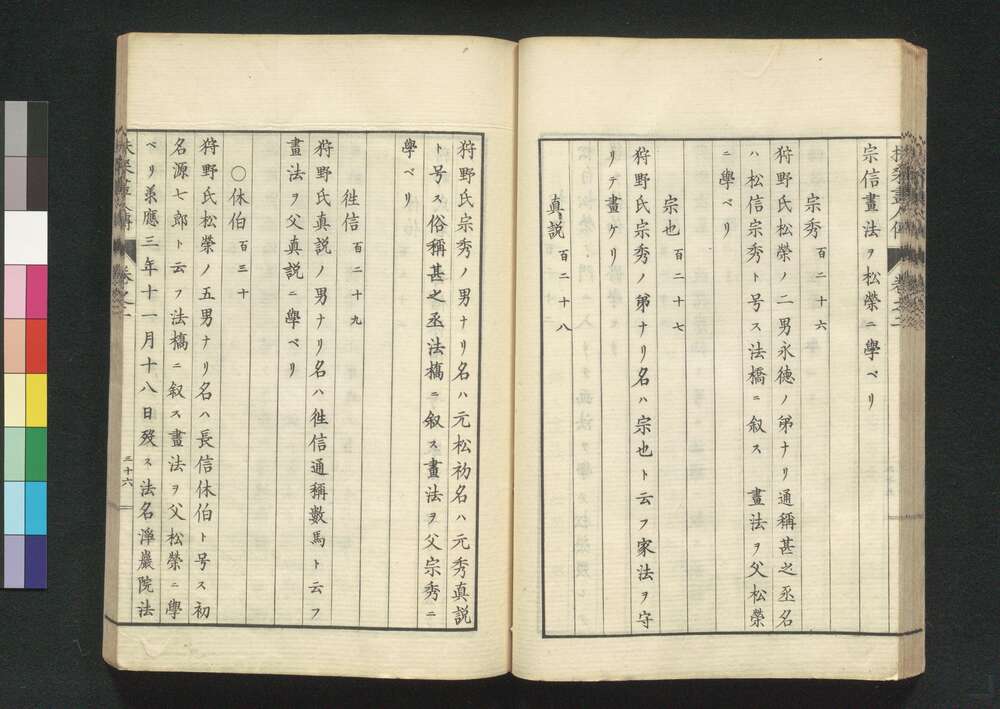 宗信畫法ヲ松榮ニ學ベリ
宗秀 百二十六
狩野氏松榮ノ二男永德ノ弟ナリ通稱甚之丞名
ハ松信宗秀ト号ス法橋ニ叙ス 畫法ヲ父松榮
ニ學ベリ
宗也 百二十七
狩野氏宗秀ノ弟ナリ名ハ宗也ト云フ家法ヲ守
リテ畫ケリ
真説 百二十八
狩野氏宗秀ノ男ナリ名ハ元松初名ハ元秀真説
ト号ス俗稱甚之丞法橋ニ叙ス畫法ヲ父宗秀ニ
學ベリ
徃信 百二十九
狩野氏真説ノ男ナリ名ハ徃信通稱數馬ト云フ
畫法ヲ父真説ニ學ベリ
〇休伯 百三十
狩野氏松榮ノ五男ナリ名ハ長信休伯ト号ス初
名源七郎ト云フ法橋ニ叙ス畫法ヲ父松榮ニ學
ベリ承應三年十一月十八日歿ス法名淨巖院法
卷之二
三十六